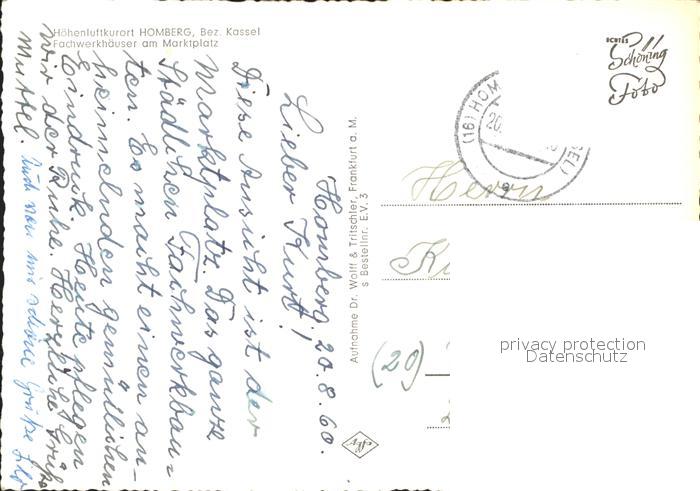 Höhenluftkurort HOMBERG, Bez. Kassel
Fachwerkhäuser am Marktplatz
Homberg, 20.8.60.
Lieber Kurt!
Diese Ansicht ist der
Marktplatz. Das ganze
Städtchen Fachwerkbau-
ten. Es macht einen an-
heimelnden gemütlichen
Eindruck. Heute pflegen
wir der Ruhe. Herzliche Grüße
Mutter.
Auch von mir schöne Grüße
Aufnahme Dr. Wolff & Tritschler, Frankfurt a. M.
s Bestellnr. E.V. 3
ECHTES
Schöning
Foto
(16) HOM
20.
EL)
a
Herrn
(20)
privacy protection
Datenschutz